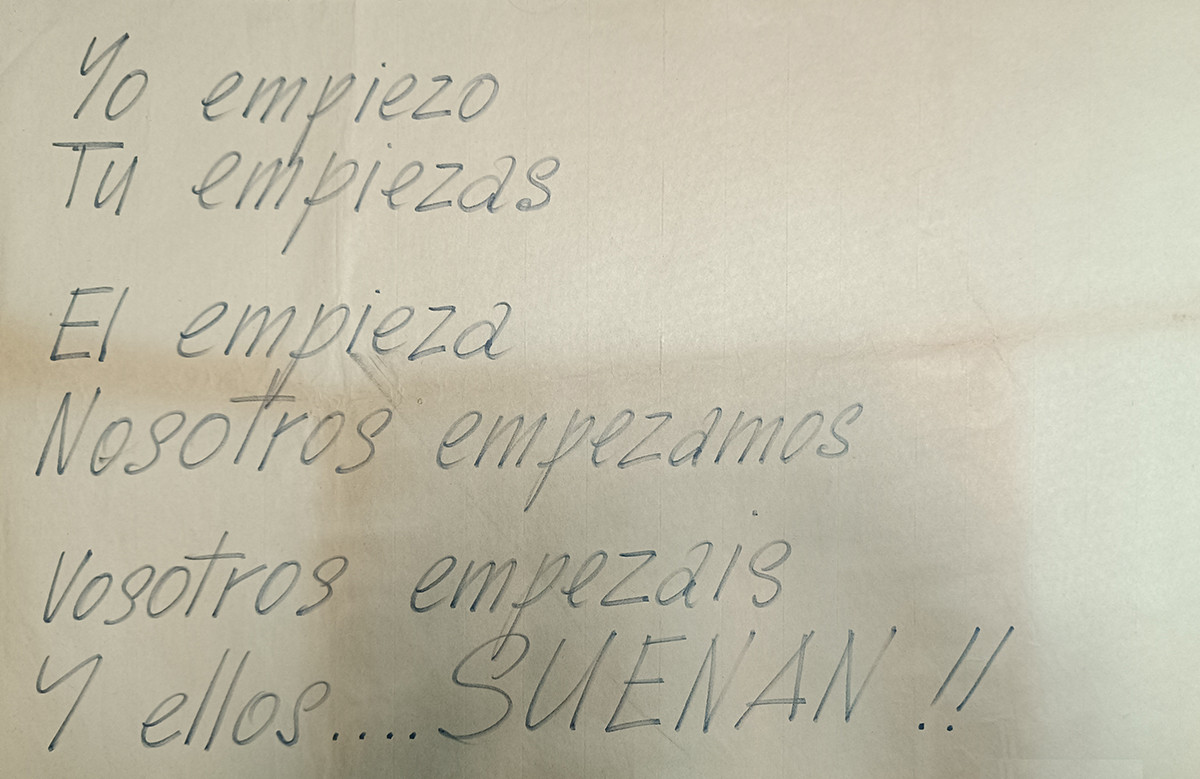 Yo empiezo
Tu empiezas
El empieza
Nosotros empezamos
Vosotros empezais
Y ellos....SUENAN !!